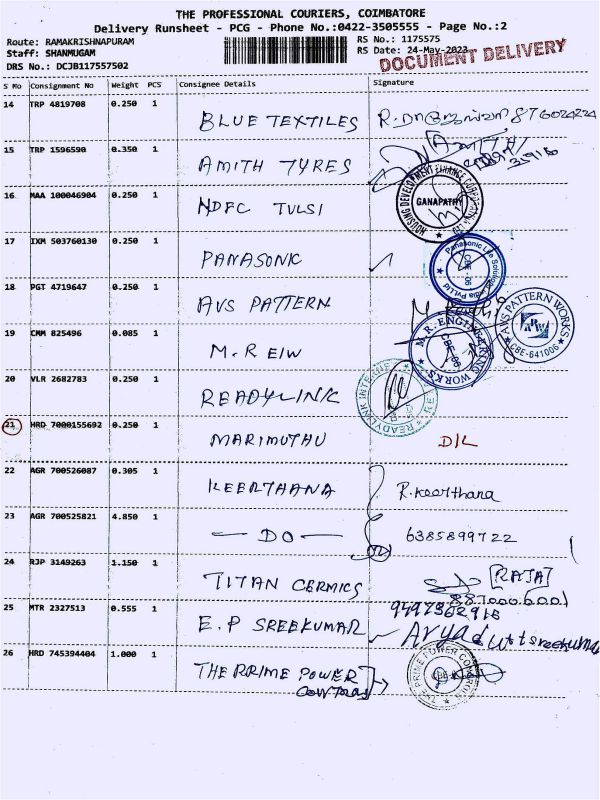 THE PROFESSIONAL COURIERS, COIMBATORE
Delivery Runsheet - PCG - Phone No.:0422-3505555 - Page No.:2
Route: RAMAKRISHNAPURAM
RS No.: 1175575
Staff: SHANMUGAM
RS Date: 24-May-2023
DOCUMENT DELIVERY
DRS No.: DCJB117557502
S No Consignment No Weight PCS Consignee Details Signature
14 TRP 4819708 0.250 1 BLUE TEXTILES
15 TRP 1596590 0.350 1 AMITH TYRES AMITH
16 MAA 100046904 0.250 1 HDFC TULSI
HOUSING DEVELOPMENT FINANCE CORPORATION LTD
GANAPATHY
17 IXM 503760130 0.250 1 PANASONIC
Panasonic Life Solutions India Pvt Ltd
CBE - 06
18 PGT 4719647 0.250 1 AVS PATTERN
AVS PATTERN WORKS
CBE-641006
19 CMM 825496 0.085 1 M.R EIW
M.R. ENGINEERING WORKS
CBE-06
20 VLR 2682783 0.250 1 READYLINK
READYLINK INTERNET
21 HRD 7000155692 0.250 1 MARIMUTHU D/L
22 AGR 700526087 0.305 1 KEERTHANA R.keerthana
23 AGR 700525821 4.850 1 — DO — 6385899722
24 RJP 3149263 1.150 1 TITAN CERMICS [RAJA]
25 MTR 2327513 0.555 1 E.P SREEKUMAR
9497362916
26 HRD 745394404 1.000 1 THE PRIME POWER
THE PRIME POWER